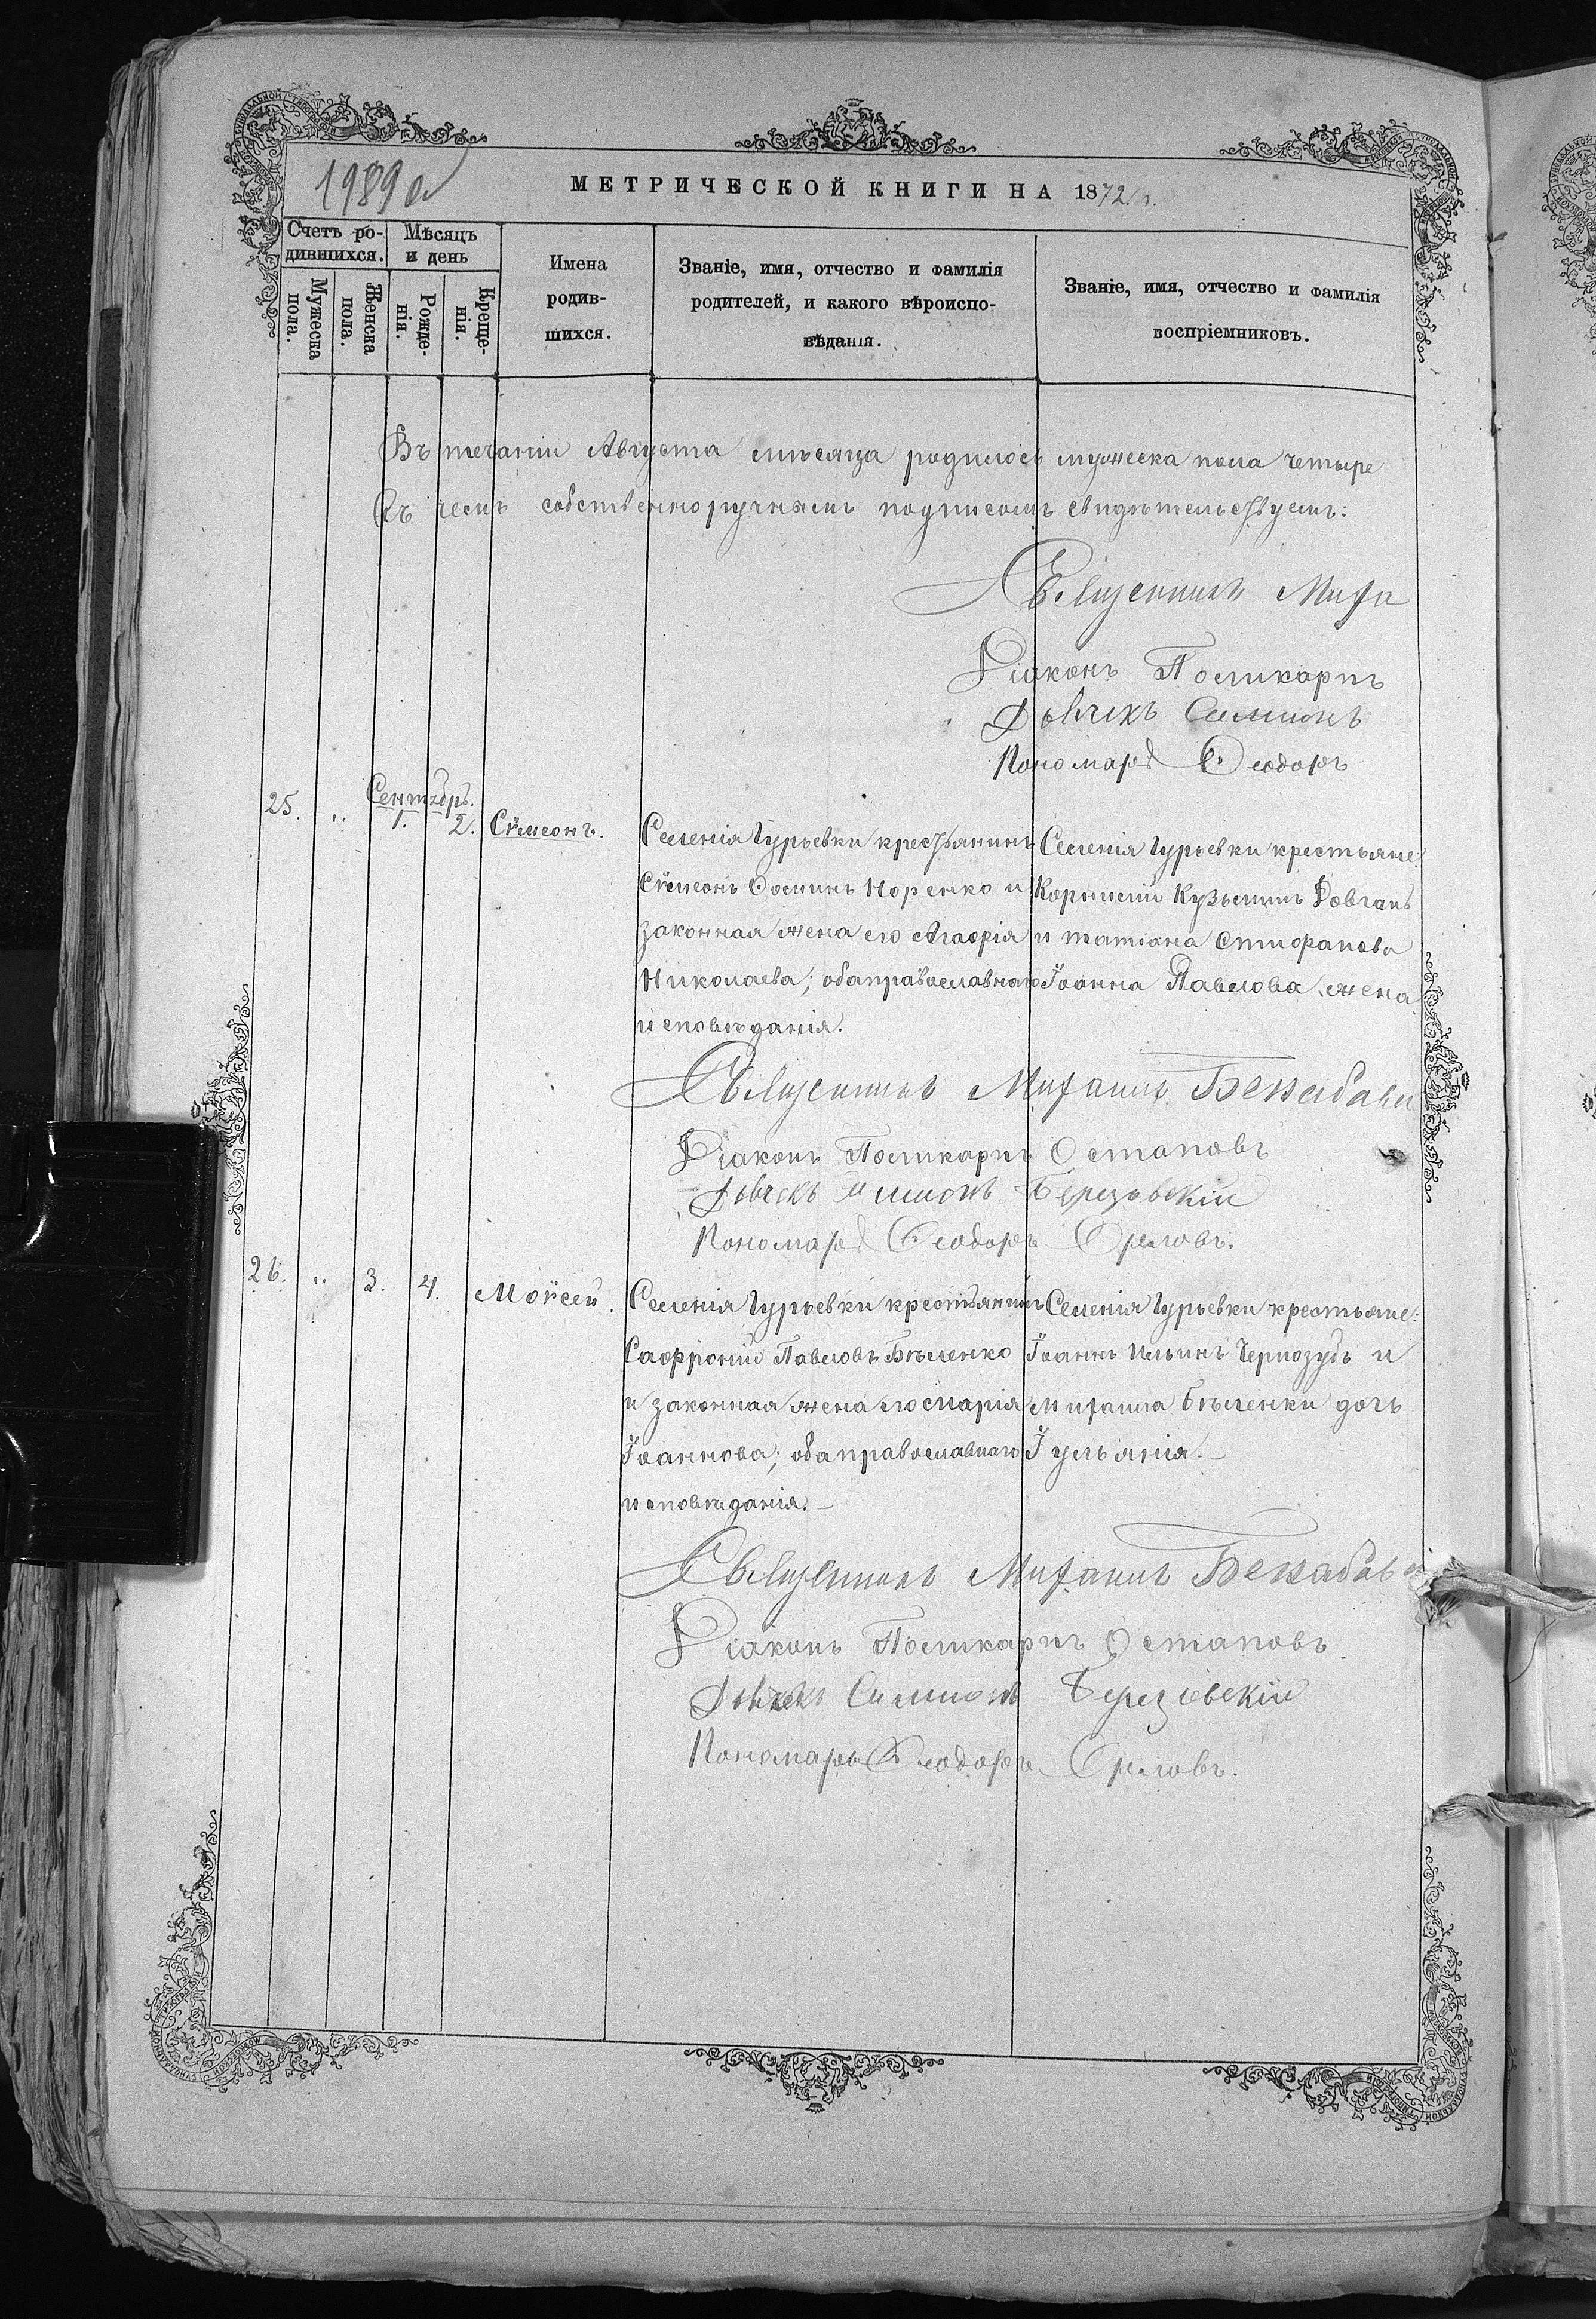 1989 об
МЕТРИЧЕСКОЙ КНИГИ НА 1872 г.
Счетъ ро-
дившихся.
Мѣсяцъ
и день
Мужеска
пола.
Женска
пола.
Рожде-
нія.
Креще-
нія.
Имена
родив-
шихся.
Званіе, имя, отчество и фамилія
родителей, и какого вѣроиспо-
вѣданія.
Званіе, имя, отчество и фамилія
воспріемниковъ.
Въ течаніи Августа мѣсяца родилось мужеска пола четыре
Въ чемъ собственноручнымъ подписомъ свидѣтельствуемъ:
Священникъ Миха
Діаконъ Поликарпъ
Дьячекъ Симионъ
Пономарь Ѳеодоръ
25. " Сентябрь. 1. 2. Сѵмеонъ.
Селенія Гурьевки крестьянинъ
Сѵмеонъ Ѳоминъ Норенко и
законная жена его Агафія
Николаева; оба православнаго
исповѣданія.
Селенія Гурьевки крестьяне:
Корнилій Кузьминъ Довгань
и татіана Стифанова
Іоанна Павлова жена
Священникъ Михаилъ
Діаконъ Поликарпъ Остаповъ
Дьячекъ Симионъ Березовскій
Пономарь Ѳеодоръ Орловъ.
26. " 3. 4. Моѵсей.
Селенія Гурьевки крестьянинъ
Сафроній Павловъ Бѣленко
и законная жена его Марія
Іоаннова; оба православнаго
исповѣданія.
Селенія Гурьевки крестьяне:
Іоаннъ Ильинъ Чернозубъ и
Михаила Бѣленки дочь
Іульянія.
Священникъ Михаилъ
Діаконъ Поликарпъ Остаповъ
Дьячекъ Симионъ Березовскій
Пономарь Ѳеодоръ Орловъ.